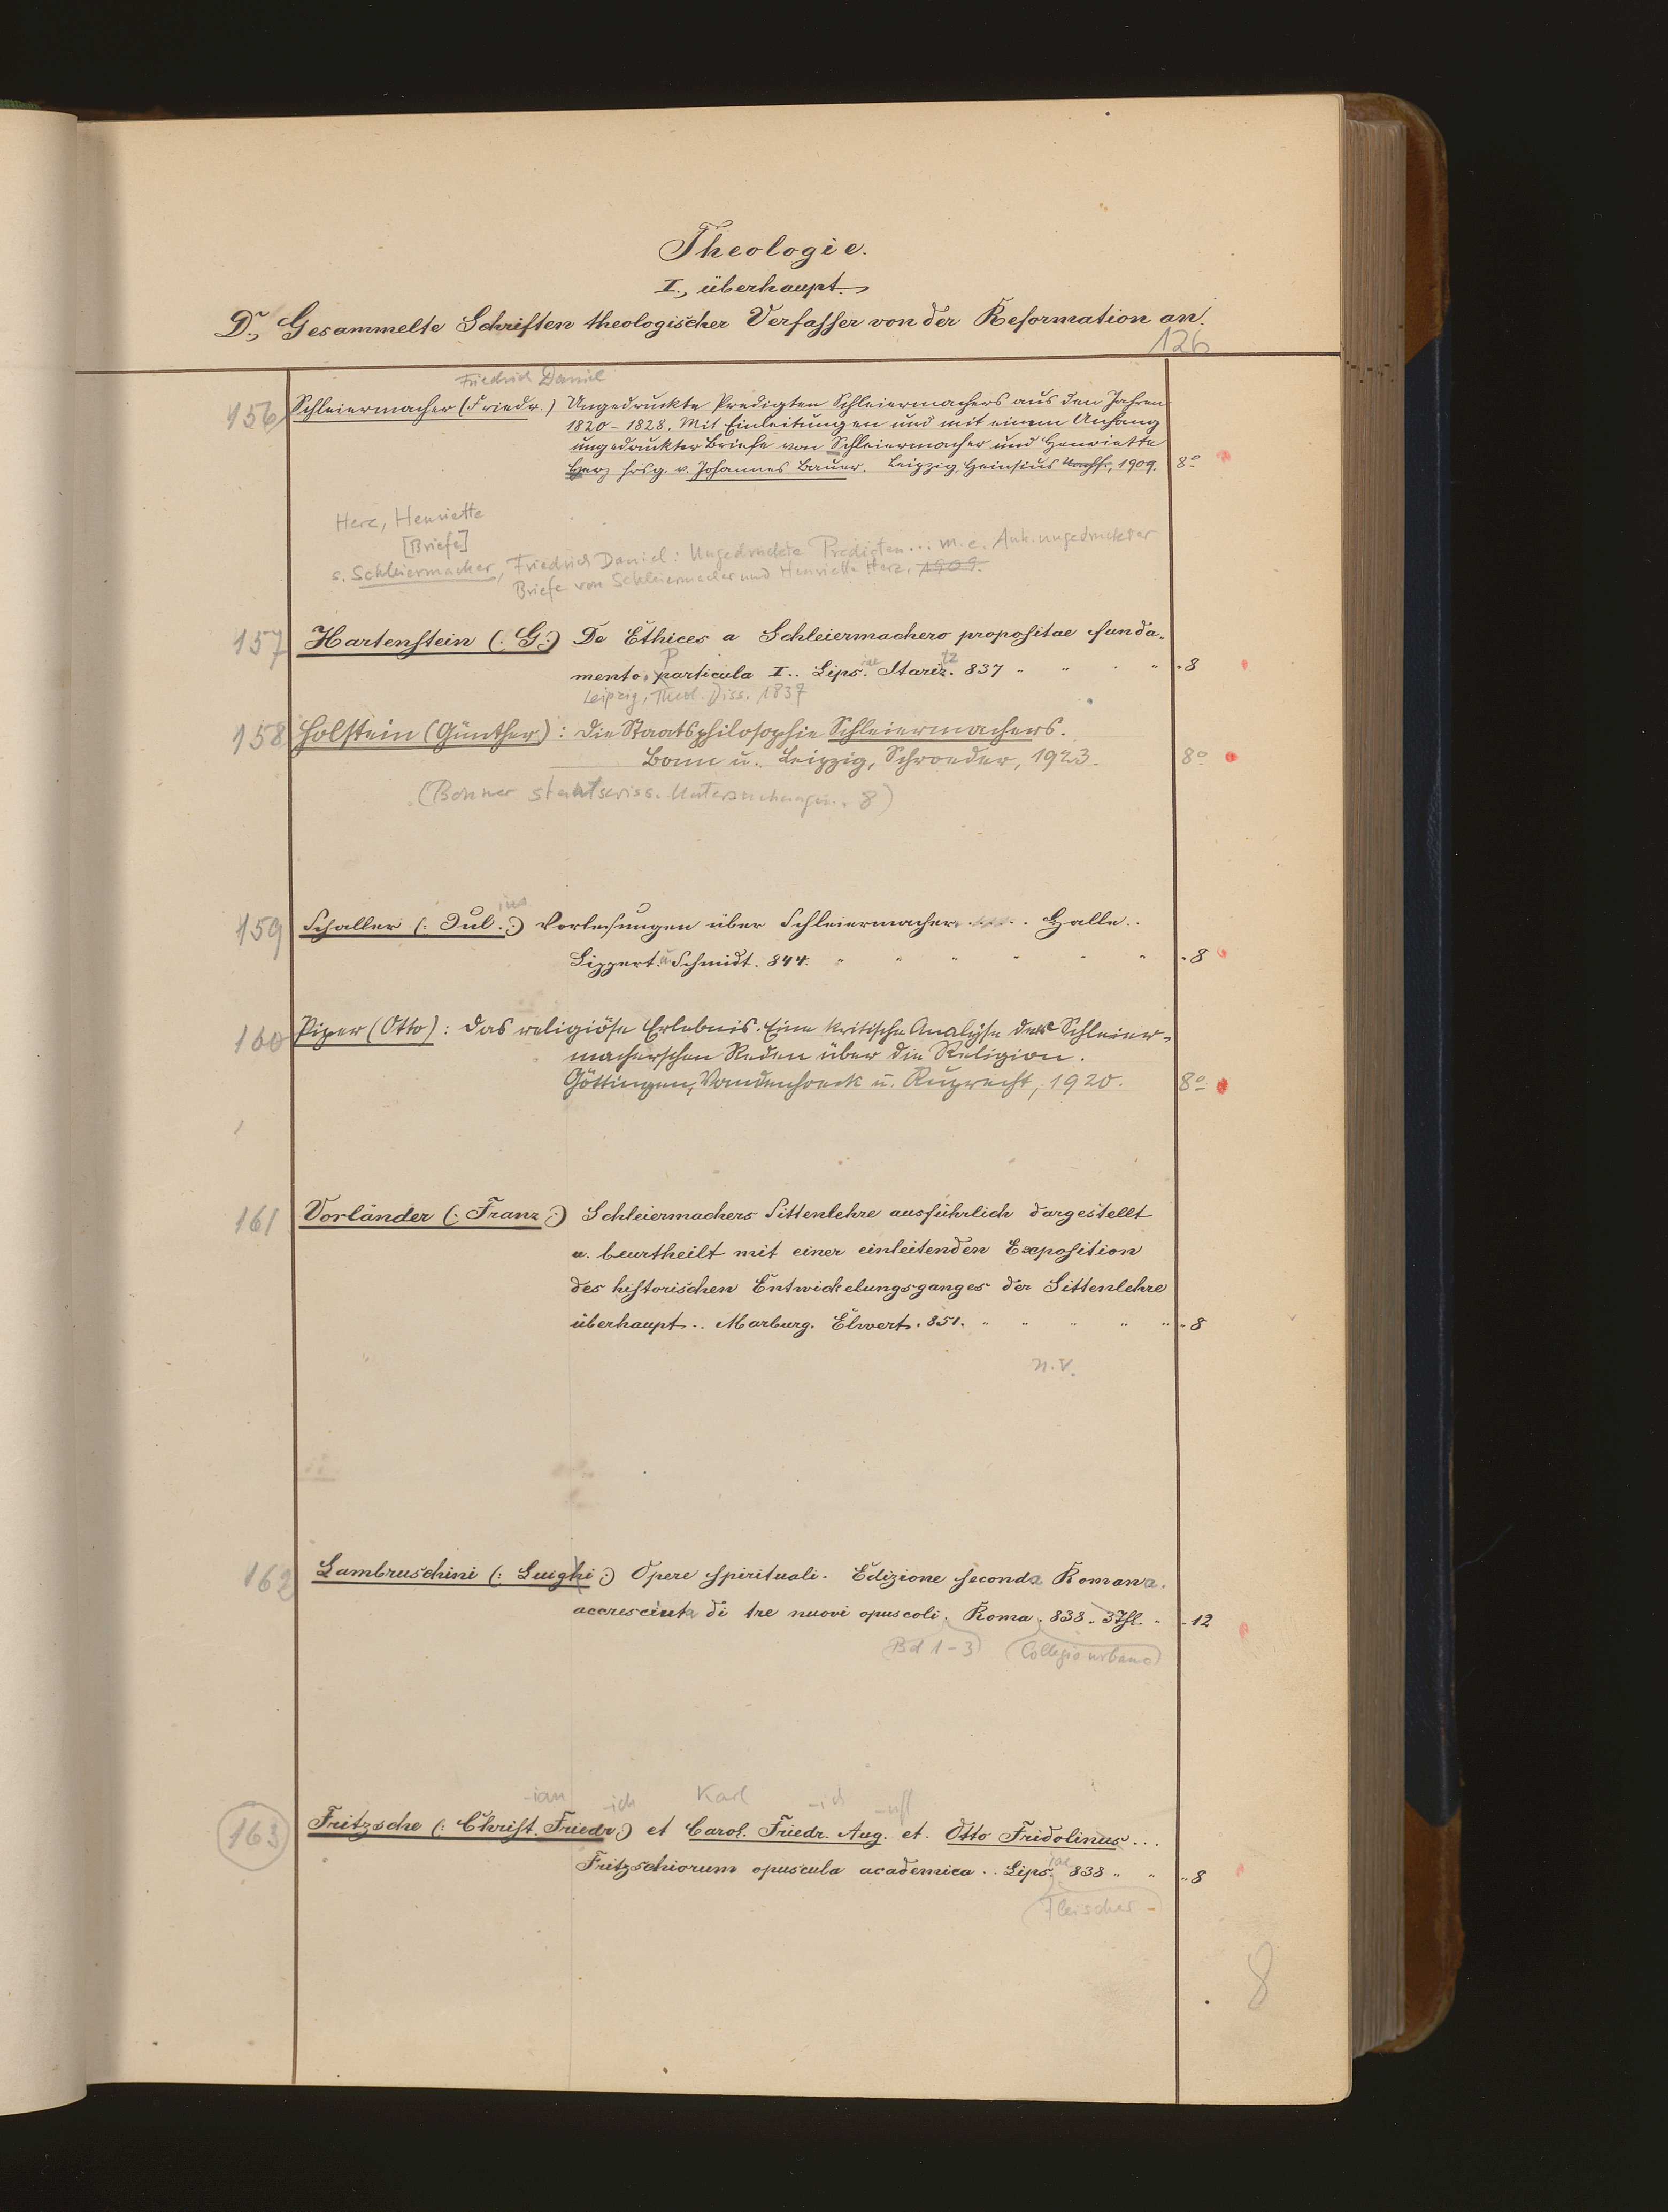 Theologie.
I., überhaupt.
D., Gesammelte Schriften theologischer Verfasser von der Reformation an.
126
Friedrich Daniel
156 Schleiermacher (Friedr.) Ungedruckte Predigten Schleiermachers aus den Jahren
1820-1828. Mit Einleitungen und mit einem Anhang
ungedruckter Briefe von Schleiermacher und Henriette
Herz hrsg. v. Johannes Bauer. Leipzig, Heinsius Nachf., 1909. 8°
Herz, Henriette
[Briefe]
s. Schleiermacher, Friedrich Daniel: Ungedruckte Predigten... m. e. Anh. ungedruckter
Briefe von Schleiermacher und Henriette Herz. 1909.
157 Hartenstein (: G :) De Ethices a Schleiermachero propositae funda-
mento. Particula I.. Lips.iae Staritz. 837 " " " " 8
Leipzig, Theol. Diss. 1837
158 Holstein (Günther): Die Staatsphilosophie Schleiermachers.
Bonn u. Leipzig, Schroeder, 1923. 8°
(Bonner staatswiss. Untersuchungen. 8)
159 Schaller (: Jul.ius :) Vorlesungen über Schleiermacher. .... Halle..
Lippert. u Schmidt. 844. " " " " " " 8
160 Piper (Otto): Das religiöse Erlebnis. Eine kritische Analyse der Schleier-
macherschen Reden über die Religion.
Göttingen, Vandenhoeck u. Ruprecht, 1920. 8°
161 Vorländer (: Franz :) Schleiermachers Sittenlehre ausführlich dargestellt
u. beurtheilt mit einer einleitenden Exposition
des historischen Entwickelungsganges der Sittenlehre
überhaupt.. Marburg. Elwert. 851. " " " " " 8
n.V.
162 Lambruschini (: Luighi :) Opere spirituali. Edizione seconda Romana.
accresciuta di tre nuovi opuscoli. Roma. 838. 3 Thl. " 12
Bd 1-3 Collegio urbano
-ian -ich Karl -ich -ust
163 Fritzsche (: Christ. Friedr :) et Carol. Friedr. Aug. et. Otto Fridolinus...
Fritzschiorum opuscula academica.. Lips.iae 838 " " 8
Fleischer
8